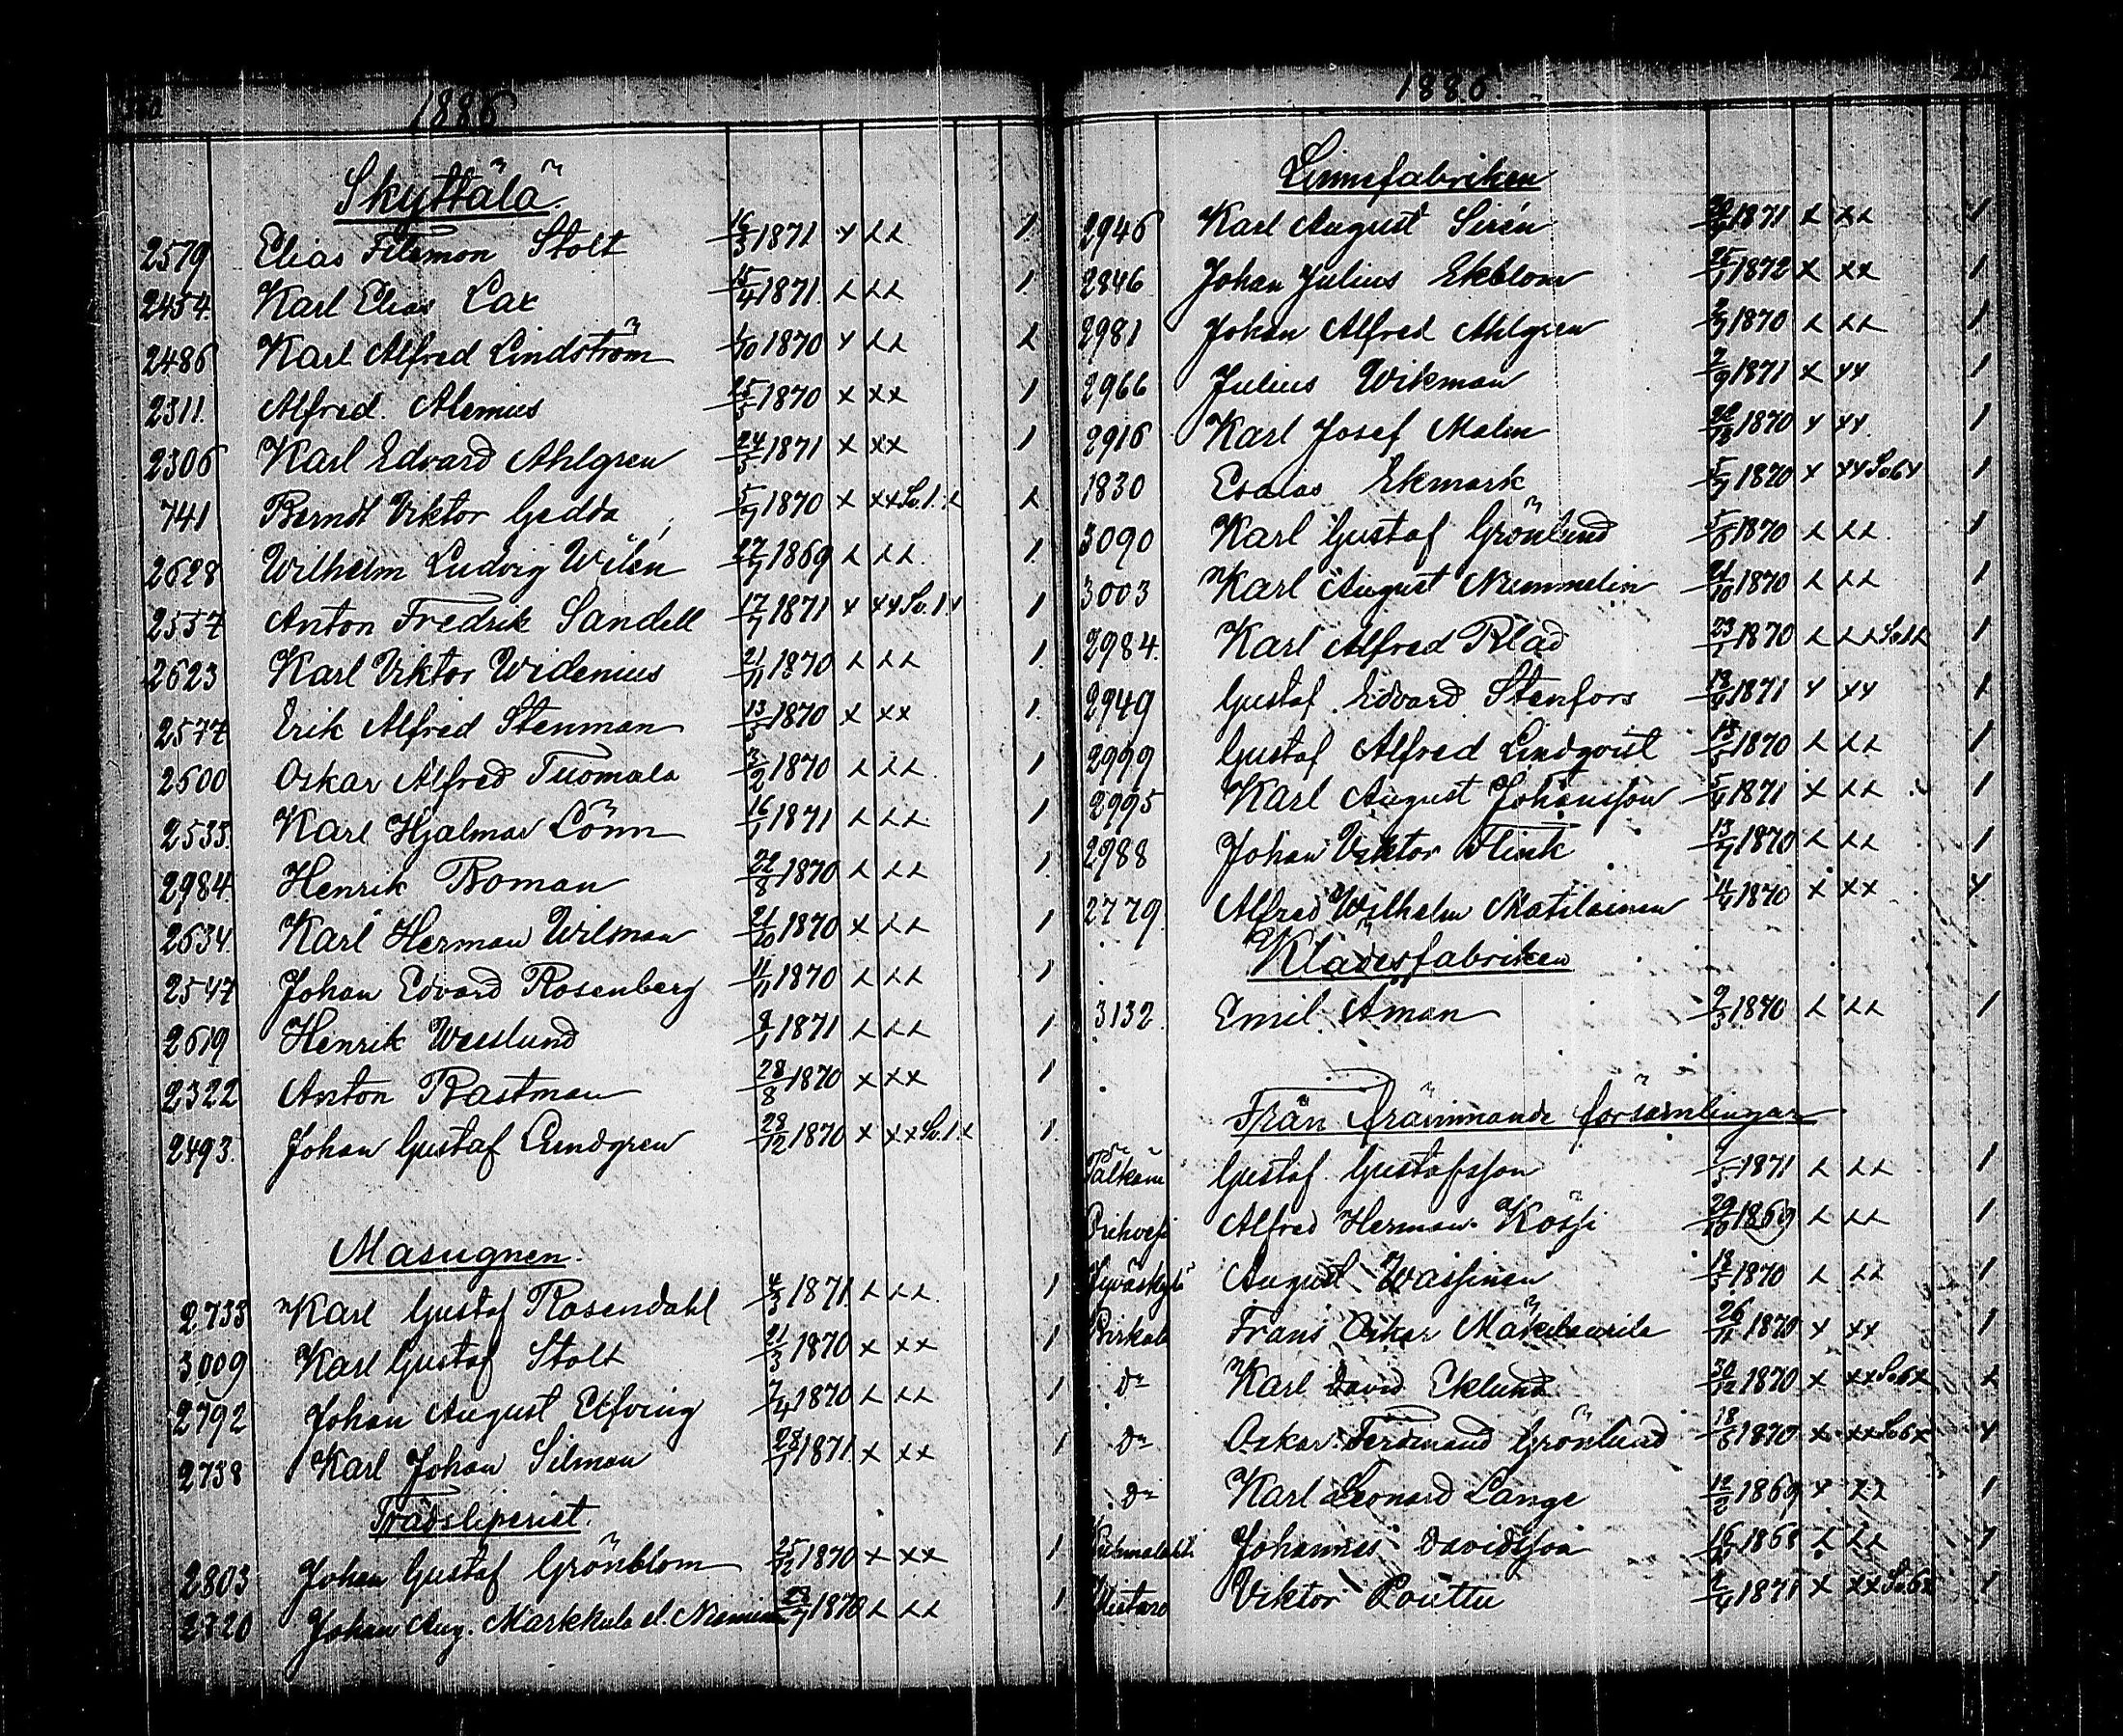 1886
Skyttälä
2579 Elias Filemon Stolt 16/3 1871 x xx 1
2454 Karl Elias Lax 15/4 1871 x xx 1
2486 Karl Alfred Lindström 1/10 1870 x xx x
2311 Alfred Alenius 25/5 1870 x xx 1
2306 Karl Edvard Ahlgren 24/5 1871 x xx 1
741 Berndt Viktor Gedda 5/7 1870 x xx Sv.1.x x
2628 Wilhelm Ludvig Wilén 27/7 1869 x xx 1
2557 Anton Fredrik Sandell 17/7 1871 x xx Sv.1x 1
2623 Karl Viktor Widenius 21/11 1870 x xx 1
2577 Erik Alfred Stenman 13/5 1870 x xx 1
2600 Oskar Alfred Tuomala 3/2 1870 x xx 1
2535 Karl Hjalmar Lönn 16/1 1871 x xx 1
2984 Henrik Boman 22/8 1870 x xx 1
2634 Karl Herman Wilman 21/10 1870 x xx 1
2547 Johan Edvard Rosenberg 11/11 1870 x xx 1
2619 Henrik Wesslund 9/1 1871 x xx 1
2322 Anton Bastman 28/8 1870 x xx 1
2493 Johan Gustaf Lundgren 28/12 1870 x xx Sv.1.x 1
Masugnen
2733 Karl Gustaf Rosendahl 4/3 1871 x xx 1
3009 Karl Gustaf Stolt 21/3 1870 x xx 1
2792 Johan August Elfving 7/4 1870 x xx 1
2738 Karl Johan Silman 28/7 1871 x xx 1
Trädsliperiet
2803 Johan Gustaf Grönblom 25/12 1870 x xx 1
2720 Johan Aug. Markkula 23/7 1870 x xx 1
1886
Linnefabriken
2946 Karl August Sirén 1871 x xx 1
2846 Johan Julius Ekblom 25/7 1872 x xx 1
2981 Johan Alfred Ahlgren 1870 x xx 1
2966 Julius Wikman 2/9 1871 x xx 1
2916 Karl Josef Malm 1870 x xx 1
1830 Esaias Ekmark 5/7 1870 x xx Sv6x 1
3090 Karl Gustaf Grönlund 1870 x xx 1
3003 Karl August Nummelin 21/10 1870 x xx 1
2984 Karl Alfred Blad 23/1 1870 x xx 1
2949 Gustaf Edvard Stenfors 1871 x xx 1
2999 Gustaf Alfred Lindqvist 1870 x xx 1
2995 Karl August Johansson 5/4 1871 x xx 1
2988 Johan Viktor Flink 13/7 1870 x xx 1
2779 Alfred Wilhelm Matilainen 1870 x xx x
Klädesfabriken
3132 Emil Åman 9/3 1870 x xx 1
Från främmande församlingar
Pälkäne Gustaf Gustafsson 1871 x xx 1
Orihvesi Alfred Herman Kössi 1869 x xx 1
Jyväskylä August Wassinen 1870 x xx 1
Birkala Frans Oskar 26/11 1870 x xx 1
Do Karl David Eklund 30/12 1870 x xx Sv6x x
Do Oskar Ferdinand Grönlund 18/6 1870 x xx Sv6x x
Do Karl Leonard Lange 12/2 1869 x xx 1
Johannes Davidsson 1868 x xx 1
Viktor Pouttu 1871 x xx Sv6x 1